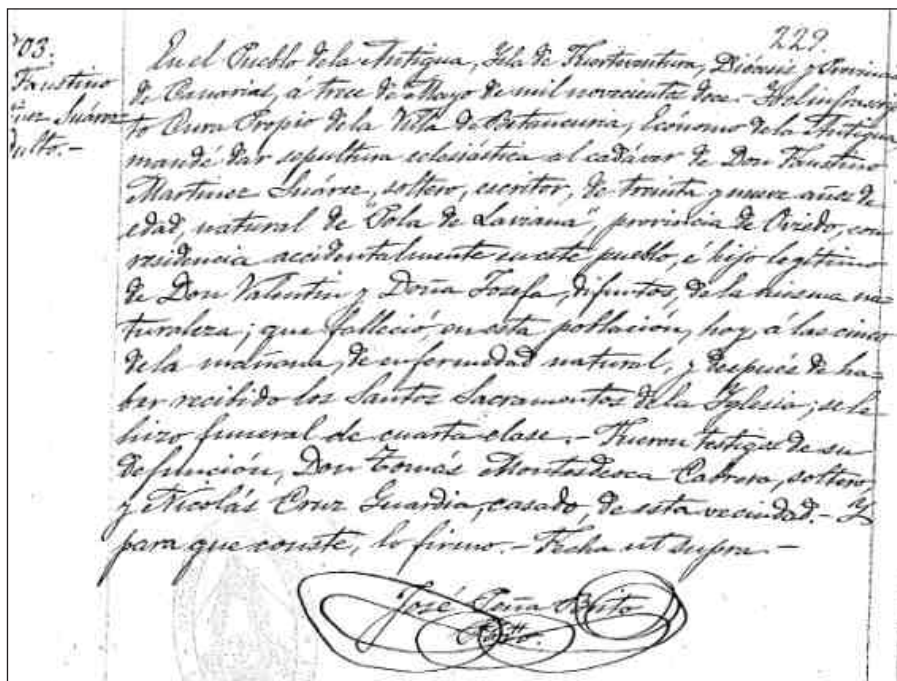 229.
03.
Faustino
Suárez
dulto.-
En el Pueblo de la Antigua, Isla de Fuerteventura, Diócesis y Provincia
de Canarias, á trece de Mayo de mil novecientos doce.- Yo el infrascri-
to Cura Propio de la Villa de Betancuria, Ecónomo de la Antigua
mandé dar sepultura eclesiástica al cadáver de Don Faustino
Martinez Suárez, soltero, escritor, de treinta y nueve años de
edad, natural de "Pola de Laviana", provincia de Oviedo, con
residencia accidentalmente en este pueblo, é hijo legítimo
de Don Valentin y Doña Josefa, difuntos, de la misma na=
turaleza; que falleció, en esta población, hoy, á las cinco
de la mañana, de enfermedad natural, y después de ha=
ber recibido los Santos Sacramentos de la Iglesia; se le
hizo funeral de cuarta clase.- Fueron testigos de su
defunción, Don Tomás Montesdeoca Cabrera, soltero
y Nicolás Cruz Guardia, casado, de esta vecindad.- Y
para que conste, lo firmo.- Fecha ut supra.-
José Peña Brito